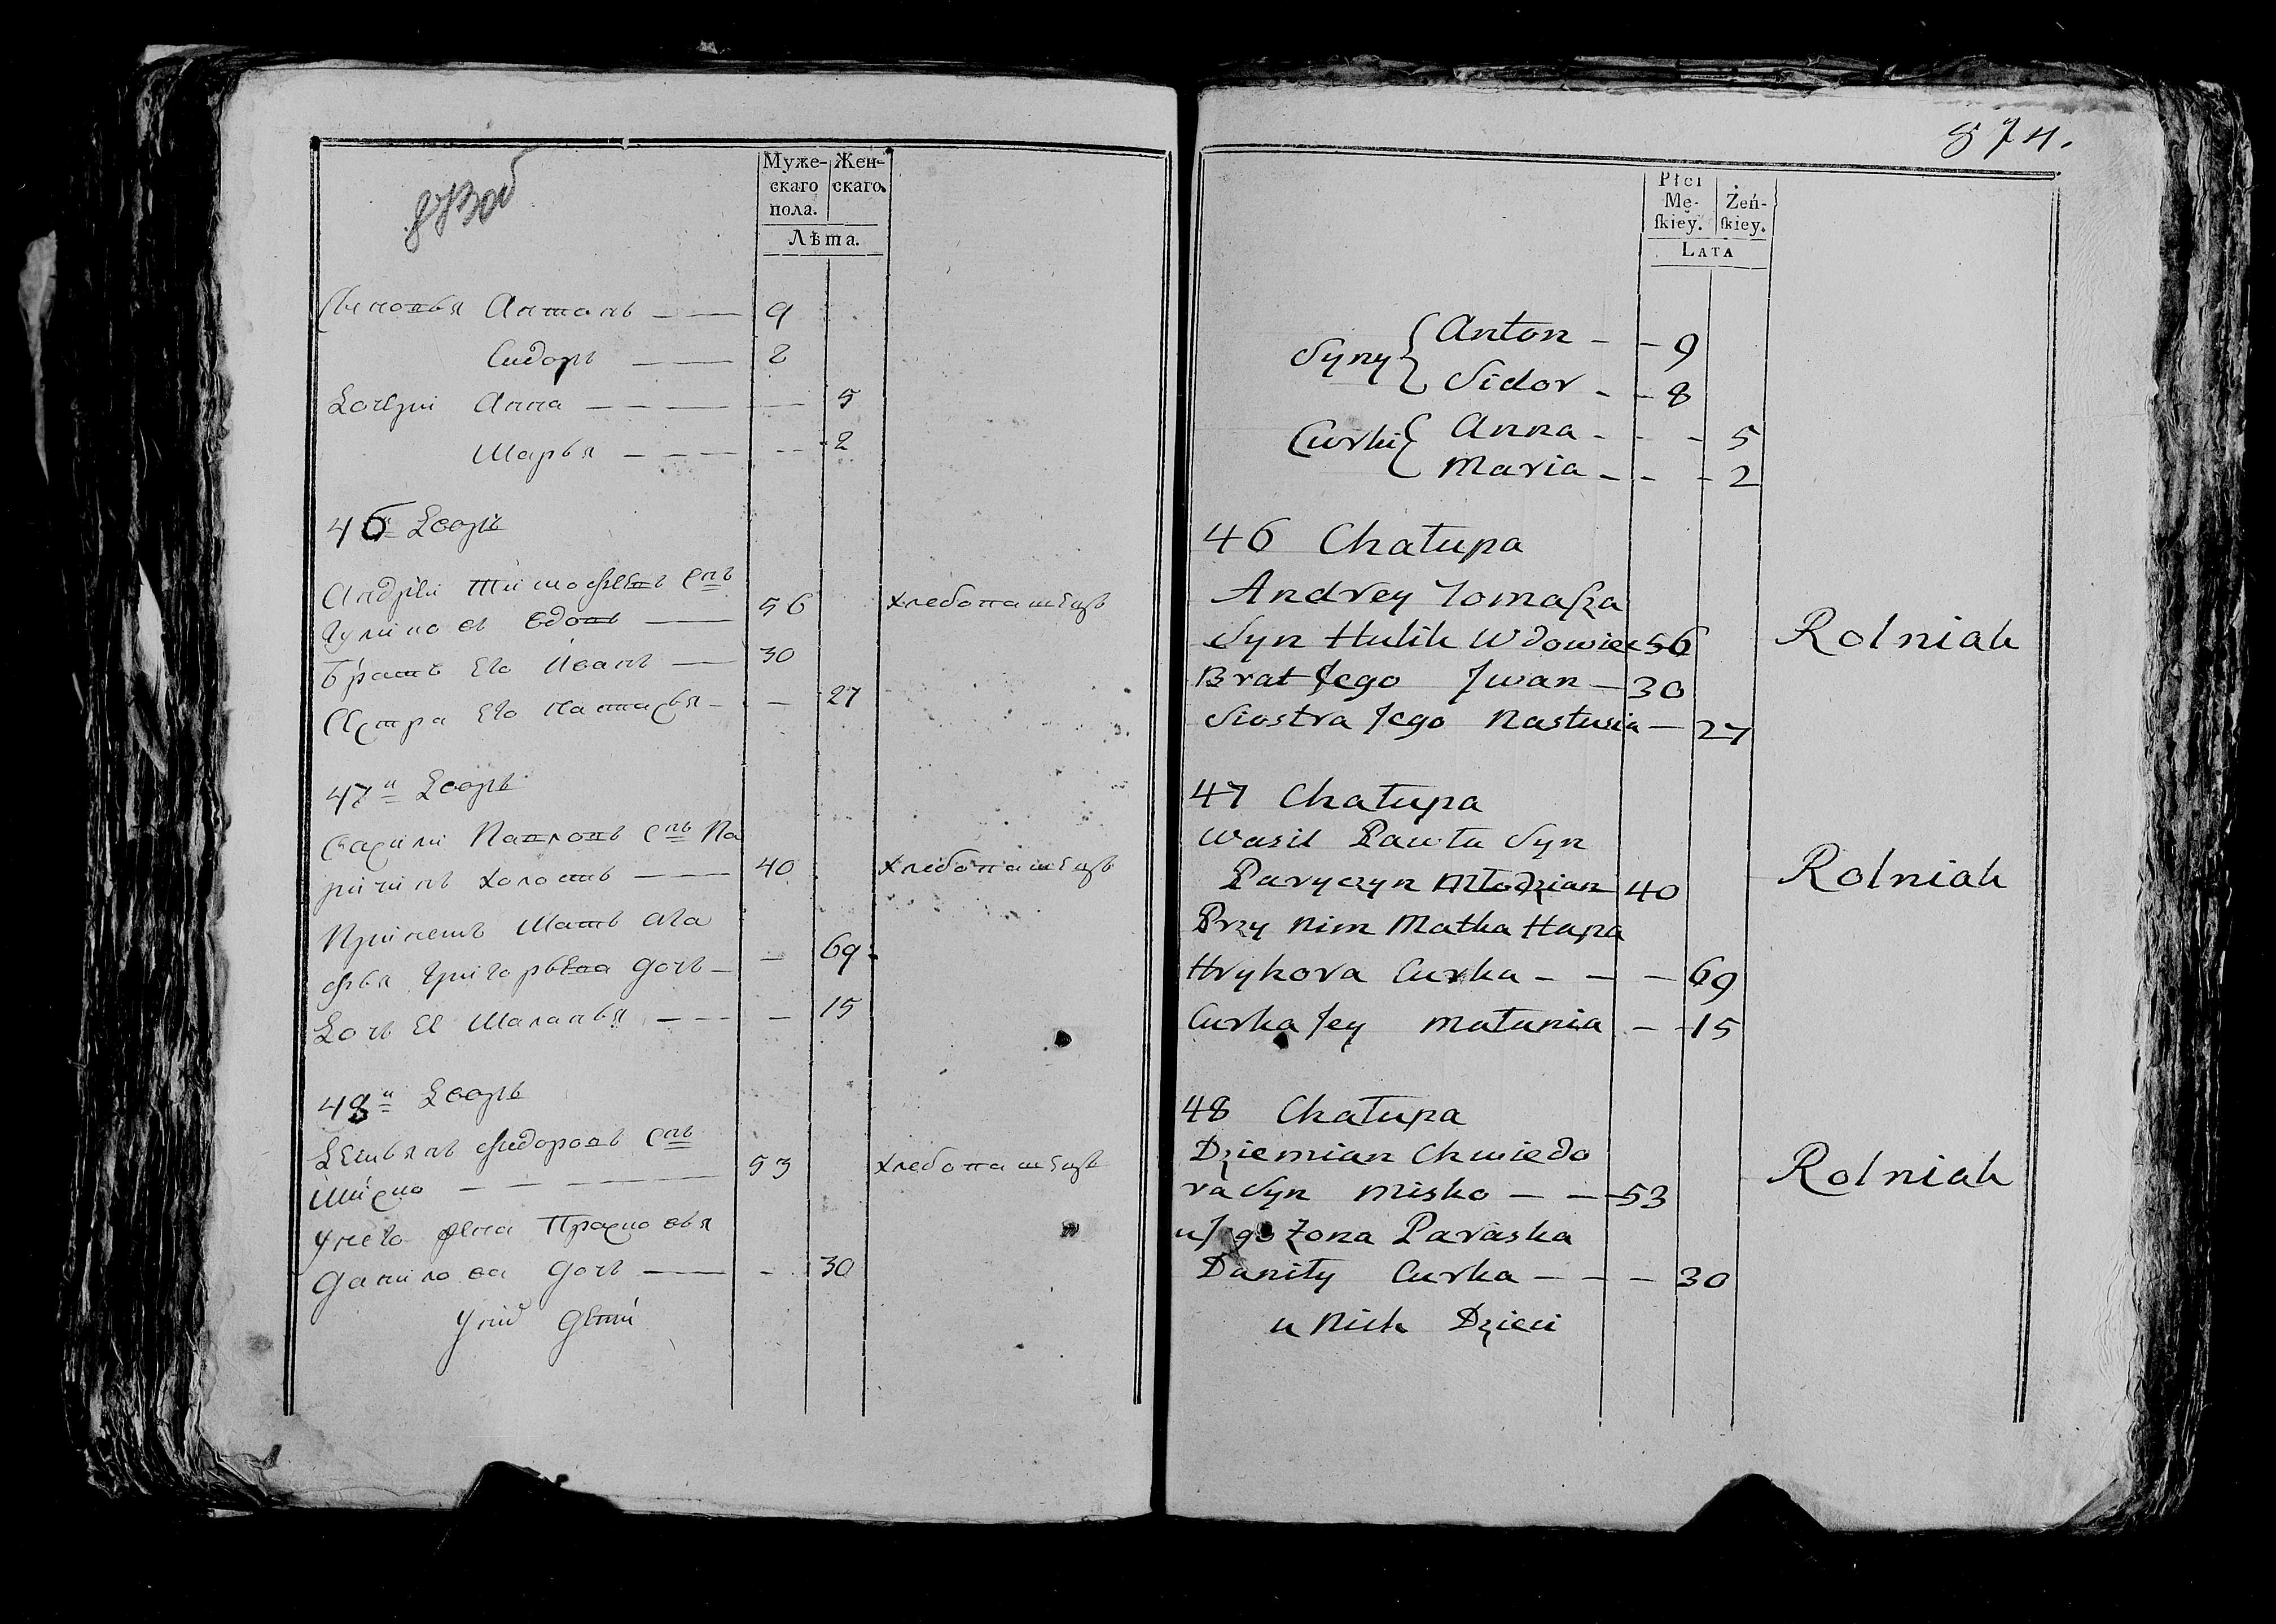 873об
Муже-
скаго
пола.
Жен-
скаго.
Лѣта.
Сыновья Антонъ — — 9
Сидоръ — 8
Дочери Анна — — — — 5
Марья — — — — 2
46й Дворъ
Андрей Тимофеевъ снъ
Гуликовъ вдовъ — 56 хлебопашецъ
Братъ его Иванъ — 30
Сестра его Настасья — — 27
47й Дворъ
Василий Павловъ снъ Па
ричинъ холостъ — 40 хлебопашецъ
При немъ мать Ага
фья Григорьева дочь — — 69
Дочь ее Маланья — — — 15
48й Дворъ
Демьянъ Фидоровъ снъ
Миско — — — 53 хлебопашецъ
У него жена Прасковья
Данилова дочь — — 30
У них дети
874.
Płci
Mę-
ſkiey.
Żeń-
ſkiey.
LATA
Syny Anton - - 9
Sidor - - 8
Curki Anna - - - 5
Maria - - - 2
46 Chałupa
Andrey Tomaſza
Syn Hulik Wdowiec 56 Rolniak
Brat Jego Jwan — 30
Siostra Jego Nastusia — 27
47 Chałupa
Wasil Pawła Syn
Paryczyn Młodzian 40 Rolniak
Przy Nim Matka Hapa
Hrykora Curka — — — 69
Curka Jey Małania — — 15
48 Chałupa
Dziemian Chwiedo
ra Syn Misko — — 53 Rolniak
u Jego Żona Paraska
Daniły Curka — — — 30
u Nich Dzieci